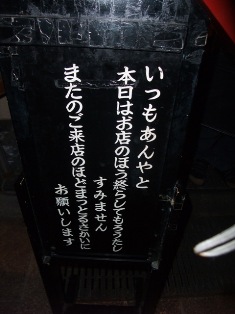 いつもあんやと
本日はお店のほう終らしてもろうたし
すみません
またのご来店のほどまっとるさかいに
お願いします